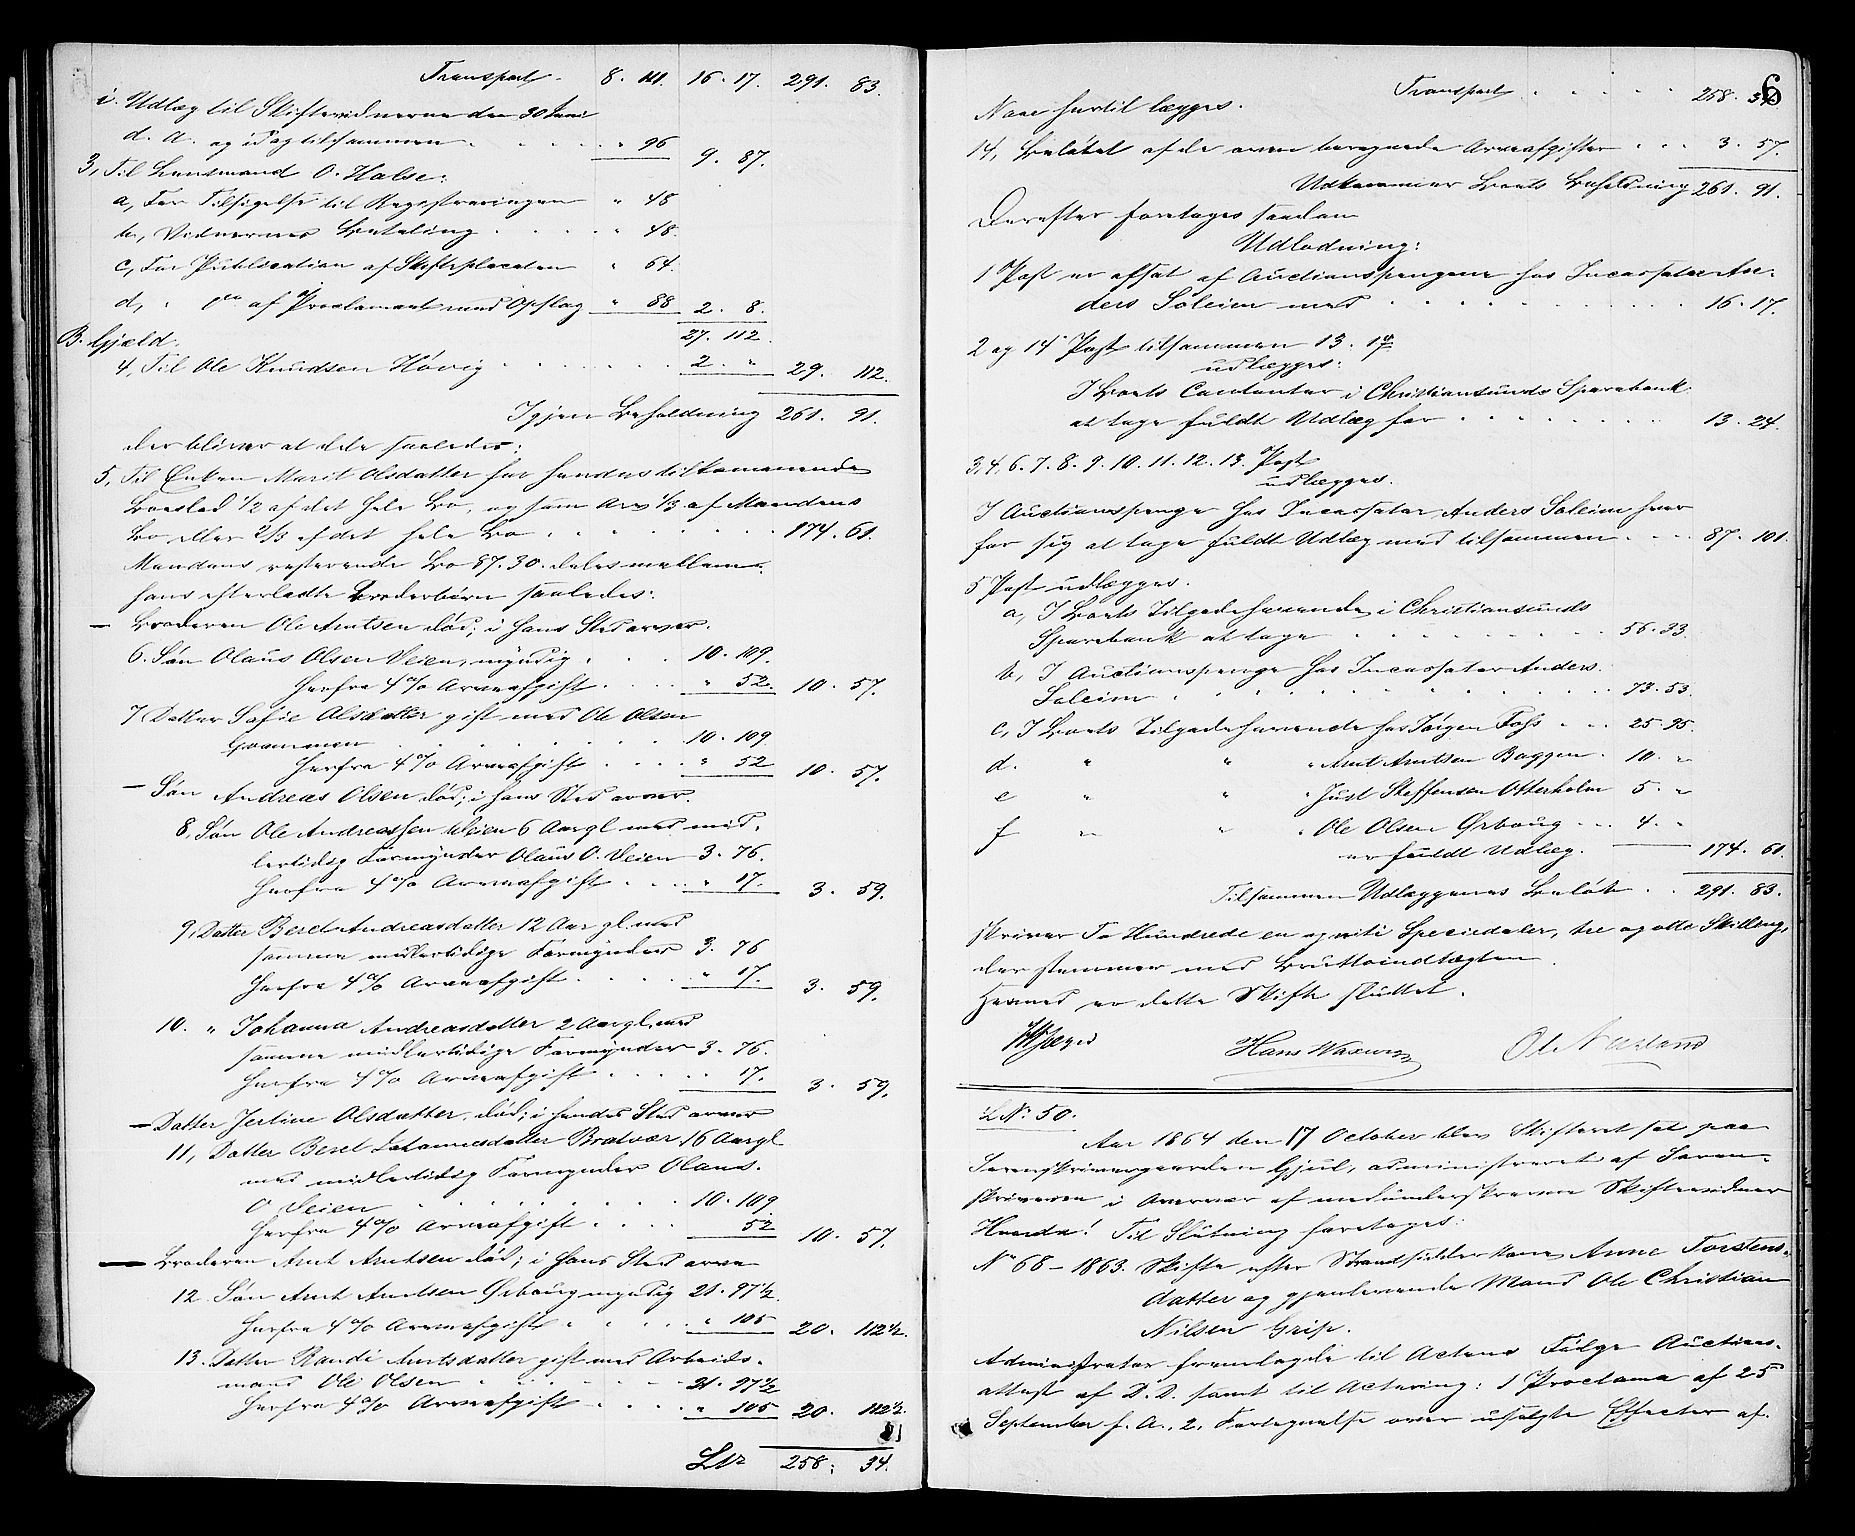 Transport - 8. 111. 16. 17. 291. 83.
i. Udlæg til Skiftevidnerne den 30 Juni
d. A. og idag tilsammen . . . . . " 96 9. 87.
3, Til Lensmand O. Halse:
a, For Tilsigelse til Registreringen " 48
b, Vidnernes Betaling . . . . . " 48.
c, For Publication af Skifteplacaten " 64.
d, " do af Proclamaet med Opslag " 88 2. 8.
27. 112.
B. Gjæld.
4, Til Ole Knudsen Hövig . . . . . . 2. " 29. 112.
Igjen Beholdning 261. 91.
der bliver at dele saaledes:
5, Til Enken Marit Olsdatter for hendes tilkommende
Boeslod 1/2 af det hele Bo, og som Arv 1/3 af Mandens
Bo eller 2/3 af det hele Bo . . . . . . . 174. 61.
Mandens resterende Bo 87. 30. deles mellem
hans efterladte Broderbörn saaledes:
— Broderen Ole Arntsen död; i hans Sted arver.
6. Sön Olaus Olsen Veien, myndig . . . . 10. 109.
Herfra 4% Arveafgift . . . . " 52. 10. 57.
7, Datter Sofie Olsdatter gift med Ole Olsen
. . . . . . . 10. 109
Herfra 4% Arveafgift . . . . " 52 10. 57.
— Sön Andreas Olsen, död; i hans Sted arver.
8, Sön Ole Andreassen Veien 6 Aar gl. med mid-
lertidig Formynder Olaus O. Veien 3. 76.
Herfra 4% Arveafgift . . . . " 17. 3. 59.
9, Datter Beret Andreasdatter 12 Aar gl. med
samme midlertidige Formynder 3. 76
Herfra 4% Arveafgift . . . . " 17. 3. 59.
10. " Johanna Andreasdatter 2 Aar gl. med
samme midlertidige Formynder 3. 76.
Herfra 4% Arveafgift . . . . " 17. 3. 59.
— Datter Jertine Olsdatter, död; i hendes Sted arver
11, Datter Beret Johannesdatter Bratvær 16 Aar gl.
med midlertidig Formynder Olaus
O Veien . . . . . . . 10. 109
Herfra 4% Arveafgift . . . . 52 10. 57.
— Broderen Arnt Arntsen död; i hans Sted arve
12. Sön Arnt Arntsen Örboug myndig 21. 97 1/2.
Herfra 4% Arveafgift . . . . " 105 20. 112 1/2.
13. Datter Randi Arntsdatter gift med Arbeids-
mand Ole Olsen . . . . . . 21. 97 1/2
Herfra 4% Arveafgift . . . . " 105 20. 112 1/2.
Ltr 258: 34.
6
Transport . . . . . 258. 34
Naar hertil lægges.
14, Belöbet af de oven beregnede Arveafgifter . . . 3. 57.
Udkommer Boets Beholdning 261. 91.
Derefter foretoges saadan
Udlodning:
1 Post er afsat af Auctionspengene hos Incassator An-
ders Soleim med . . . . . . . . 16. 17.
2 og 14 Post tilsammen 13. 17
udlægges:
I Boets Contanter i Christiansunds Sparebank
at tage fuldt Udlæg for . . . . . . . 13. 24.
3, 4, 6. 7. 8. 9. 10. 11. 12. 13. Post
udlægges.
I Auctionspenge hos Incassator Anders Soleim hver
for sig at tage fuldt Udlæg med tilsammen . . . . 87. 101.
5 Post udlægges.
a, I Boets Tilgodehavende i Christiansunds
Sparebank at tage . . . . . . . 56. 33
b, I Auctionspenge hos Incassator Anders
Soleim . . . . . . . . . . 73. 53.
c, I Boets Tilgodehavende hos Jörgen Foss . . . 25. 95.
d. " " " Arnt Arntsen Boggen . 10. "
e " " " Just Steffensen Otterholm 5. "
f " " " Ole Olsen Örboug . . . 4. "
er fuldt Udlæg. 174. 61.
Tilsammen Udlæggenes Belöb . . 291. 83.
skriver To Hundrede en og niti Speciedaler, tre og otti Skilling,
der stemmer med Bruttoindtægten.
Hermed er dette Skifte sluttet.
Hans Ole
L No 50.
Aar 1864 den 17 October blev Skifteret sat paa
Sorenskrivergaarden Gjul, administreret af Soren-
skriveren i Overvær af medunderskrevne Skiftevidner
Hvorda! Til Slutning foretoges:
No 68 – 1863. Skifte efter Strandsidderkone Anne Torstens-
datter og gjenlevende Mand Ole Christian
Nilsen Grip.
Administrator fremlagde til Actens Fölge Auctions-
attest af D. D. samt til Actering: 1 Proclama af 25
September f. A., 2, Fortegnelse over usolgte Effecter af